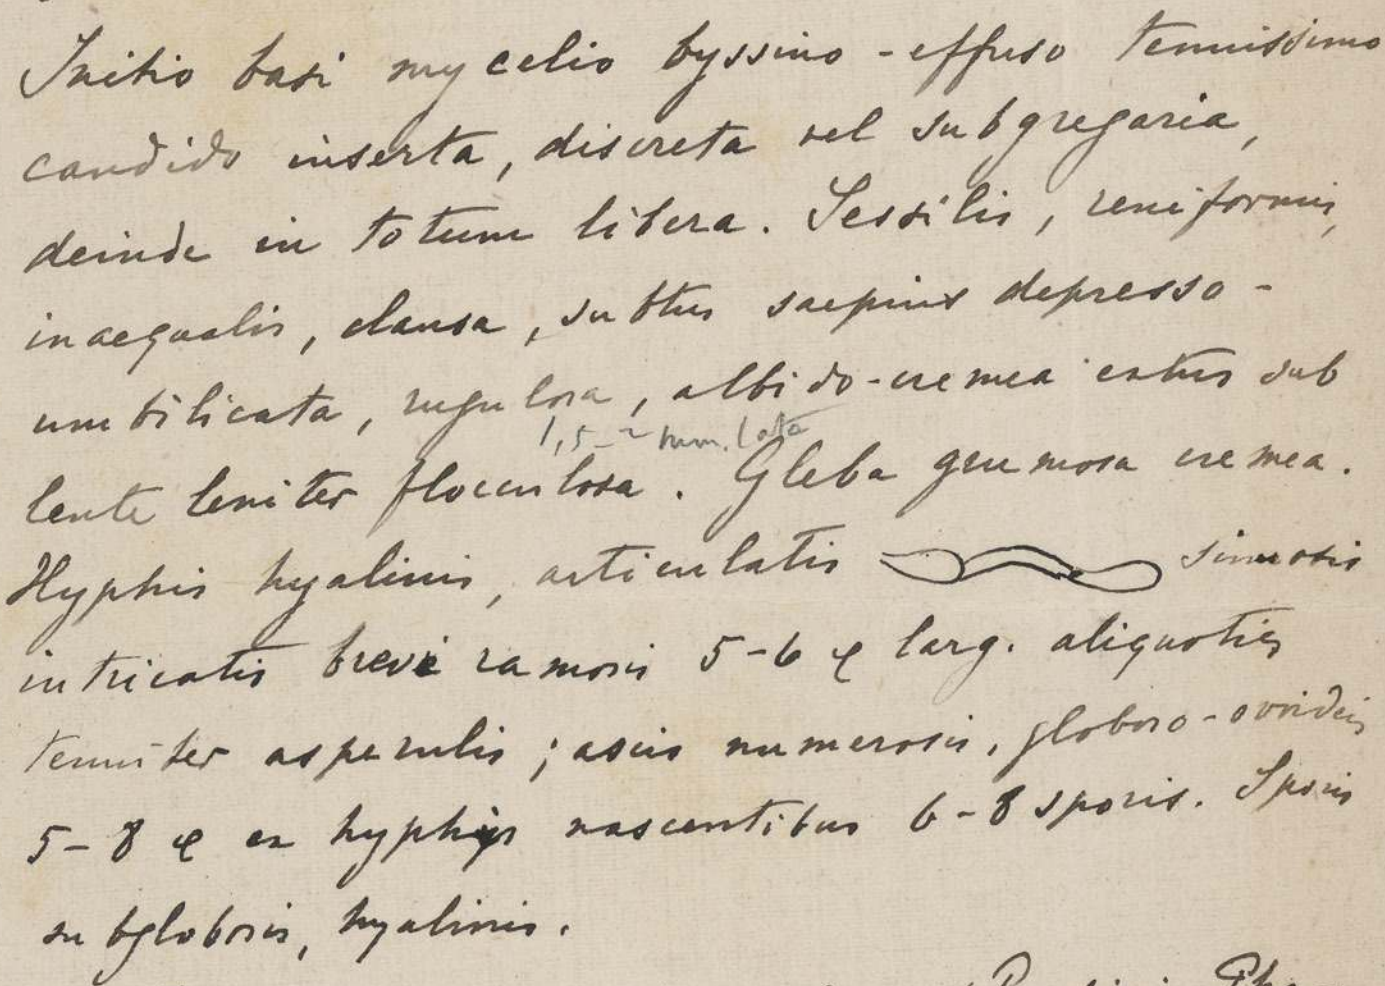 Initio basi mycelio byssino-effuso tenuissimo
candido inserta, discreta vel subgregaria,
deinde in totum libera. Sessilis, reniformis,
inaequalis, clausa, subtus saepius depresso-
umbilicata, rugulosa, albido-cremea extus sub
1,5-2 mm. lata
lente leniter flocculosa. Gleba grumosa cremea.
Hyphis hyalinis, articulatis sinuosis
intricatis breve ramosis 5-6 μ larg. aliquoties
tenuiter asperulis; ascis numerosis, globoso-ovoideis
5-8 μ ex hyphis nascentibus 6-8 sporis. Sporis
subglobosis, hyalinis.